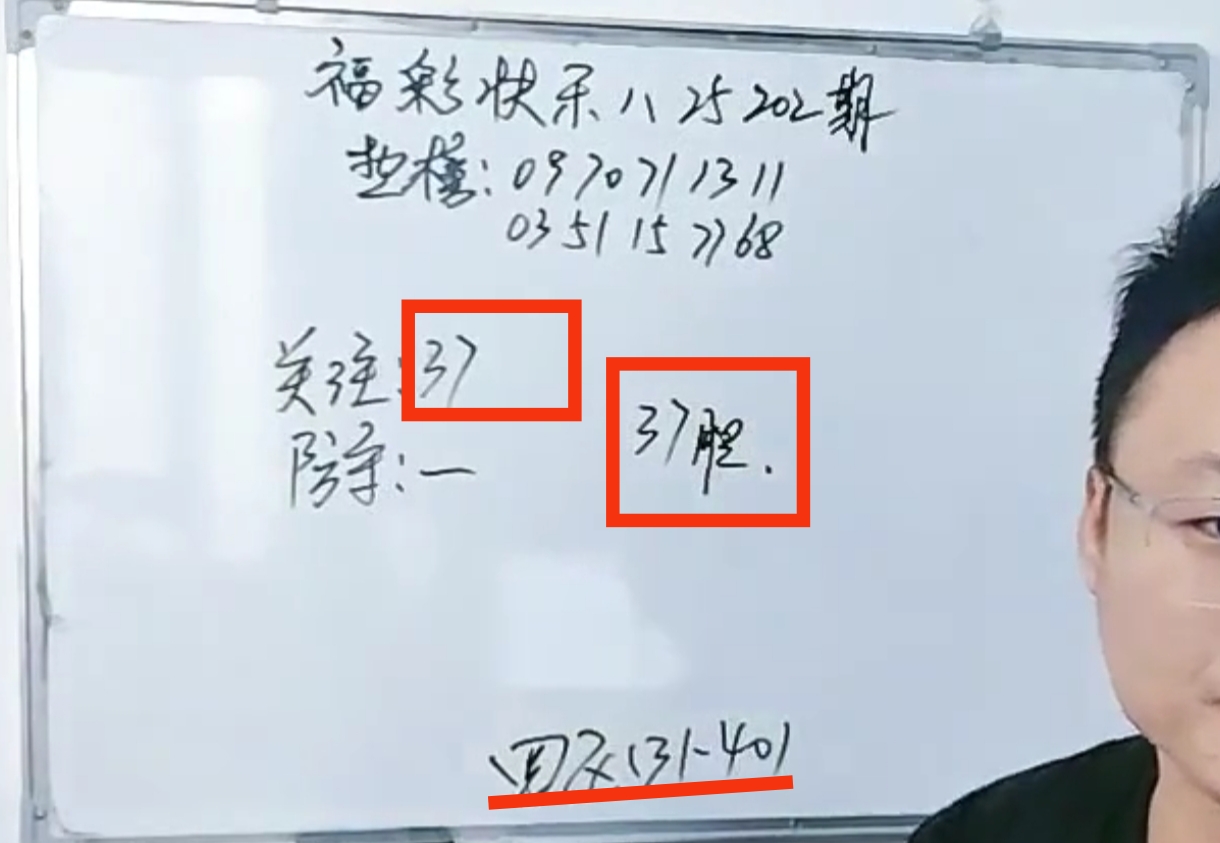 福彩快乐八25202期
垫槿:0970711311
0351157768
关注:37
防守:一
37胆.
四区(31-40)